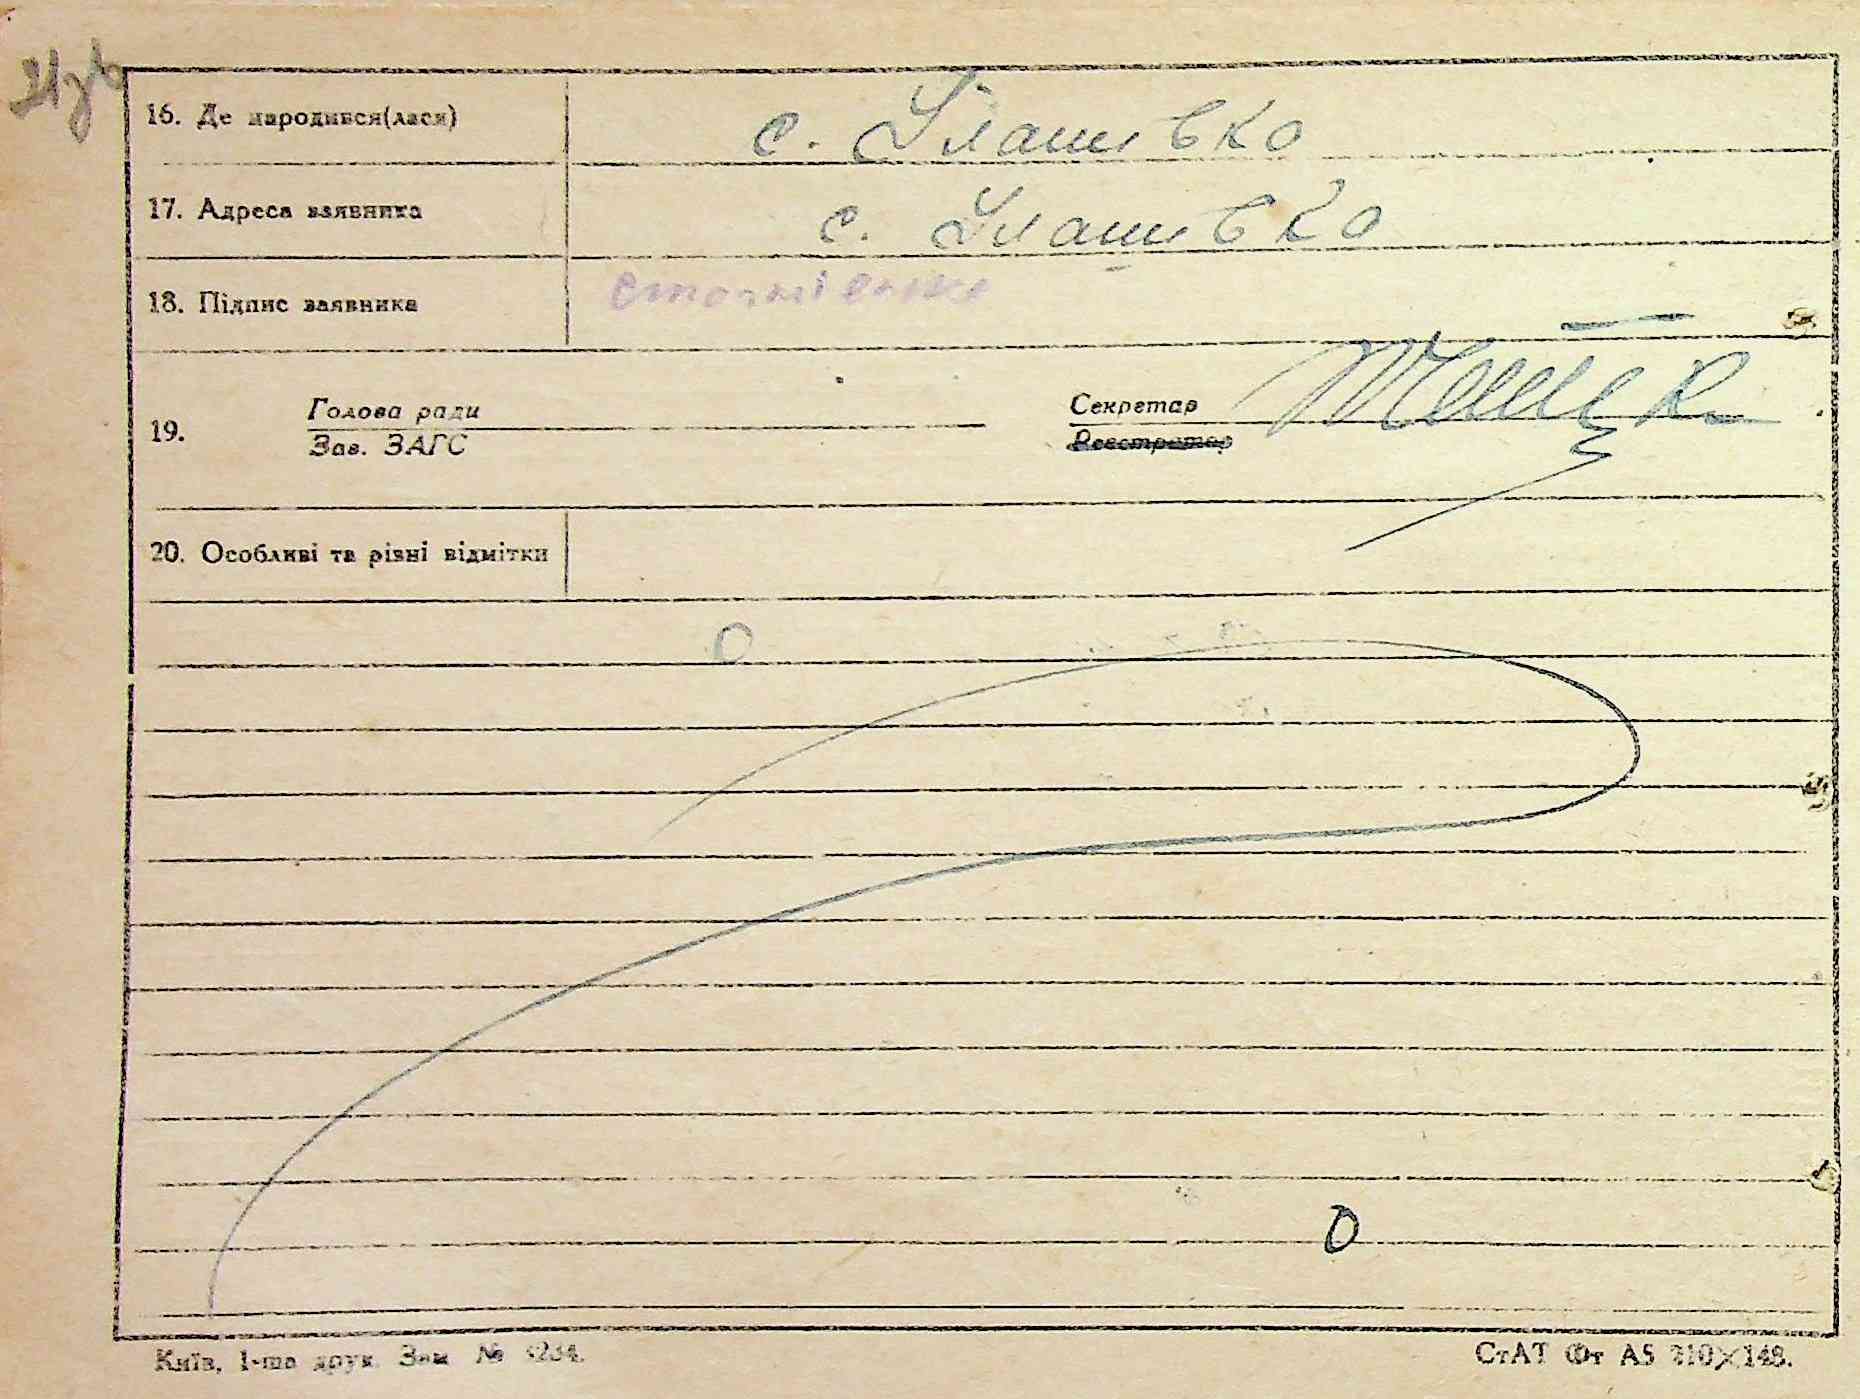 16. Де народився(лася) с. Улашівка
17. Адреса заявника с. Улашівка
18. Підпис заявника
19. Голова ради Секретар
Зав. ЗАГС Реєстратор
20. Особливі та різні відмітки
О
О
Київ, 1-ша друк. Зам. №
СтАТ Фт А5 210×148.